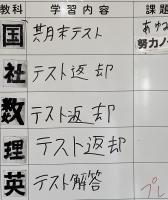 教科 学習内容 課題
国 期末テスト あゆみ
努力ノ
社 テスト返却
数 テスト返却
理 テスト返却
英 テスト解答 プレ